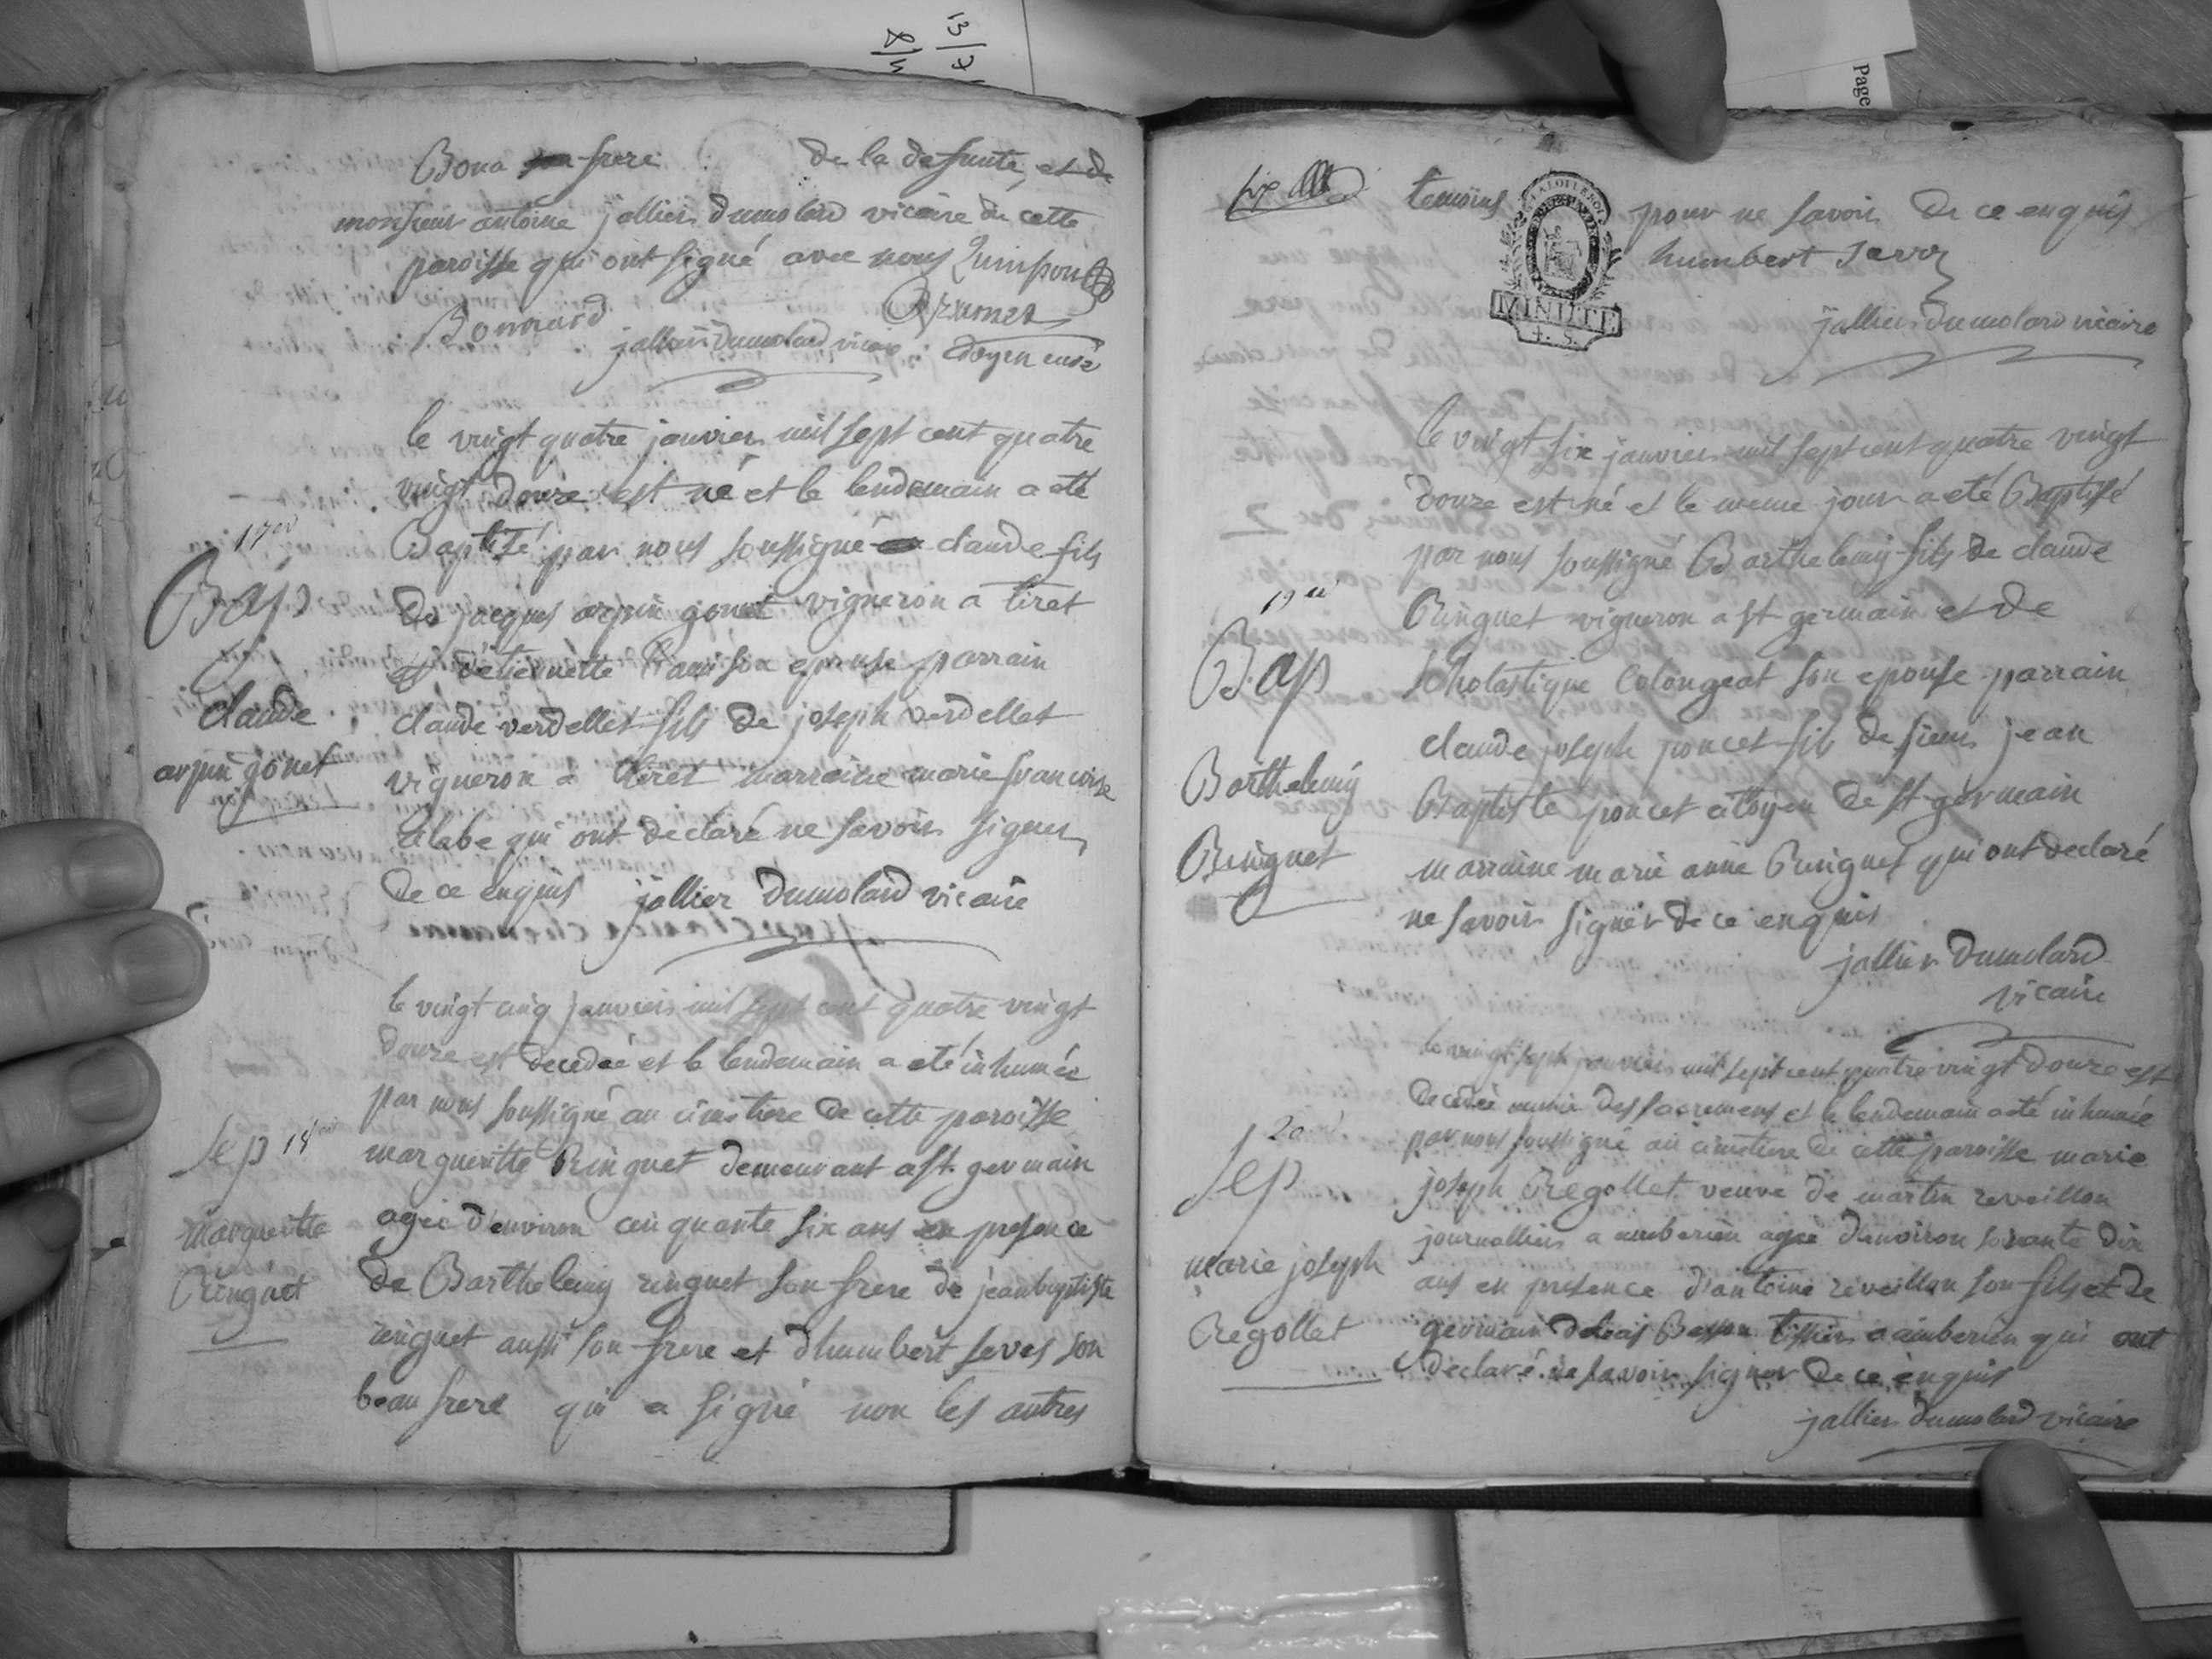 13/7
8/4
Page
Bona frere de la defunte, et de
monsieur antoine jallier dumolard vicaire de cette
paroisse qui ont signé avec nous
Bonnard
jallier dumolard vicaire doyen curé
le vingt quatre janvier mil sept cent quatre
vingt douze est né et le lendemain a eté
Baptisé par nous soussigné claude fils
de jacques arpin gonet vigneron a tiret
et d'etiennette son epouse parrain
claude verdellet fils de joseph verdellet
vigneron a tiret marraine marie francoise
qui ont declaré ne savoir signer
de ce enquis jallier dumolard vicaire
17
Bap
claude
arpin gonet
le vingt cinq janvier mil sept cent quatre vingt
douze est decedeé et le lendemain a eté inhumée
par nous soussigné au cimetiere de cette paroisse
margueritte Ringuet demeurant a st. germain
ageé d'environ cinquante six ans en presence
de Barthelemy ringuet son frere de jean baptiste
ringuet aussi son frere et d'humbert serves son
beau frere qui a signé non les autres
sep 18
margueritte
Ringuet
six
temoins pour ne savoir de ce enquis
humbert
jallier dumolard vicaire
LA LOI LE ROI
MINUTE
4. S.
le vingt six janvier mil sept cent quatre vingt
douze est né et le meme jour a eté Baptisé
par nous soussigné Barthelemy fils de claude
Ringuet vigneron a st germain et de
scholastique Colongeat son epouse parrain
claude joseph poncet fils de sieur jean
Baptiste poncet citoyen de st germain
marraine marie anne Ringuet qui ont declaré
ne savoir signer de ce enquis
jallier dumolard
vicaire
19
Bap
Barthelemy
Ringuet
le vingt sept janvier mil sept cent quatre vingt douze est
decedée munie des sacremens et le lendemain a eté inhumée
par nous soussigné au cimetiere de cette paroisse marie
joseph Regollet veuve de martin reveillon
journallier a amberieu agée d'environ soixante dix
ans en presence d'antoine reveillon son fils et de
germain Besson tissier a amberieu qui ont
declaré ne savoir signer de ce enquis
jallier dumolard vicaire
20
sep
marie joseph
Regollet